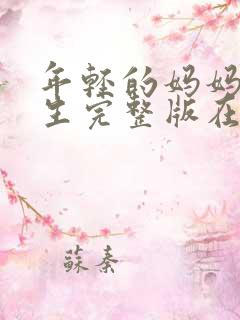 年轻的妈妈
生完整版在
蘇秦